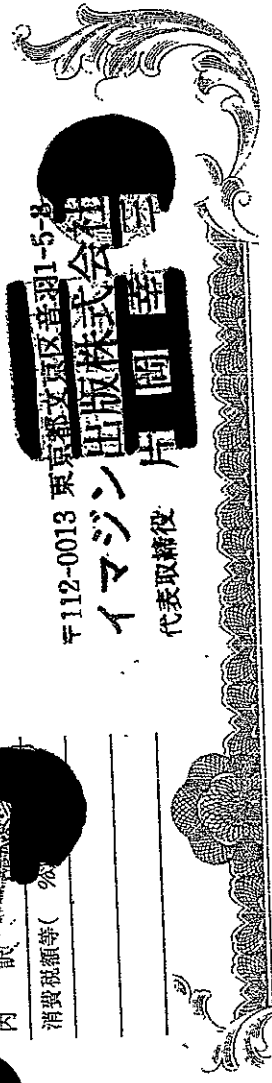 内訳
消費税額等( %)
〒112-0013 東京都文京区音羽1-5-8
イマジン出版株式会社
代表取締役 片岡幸